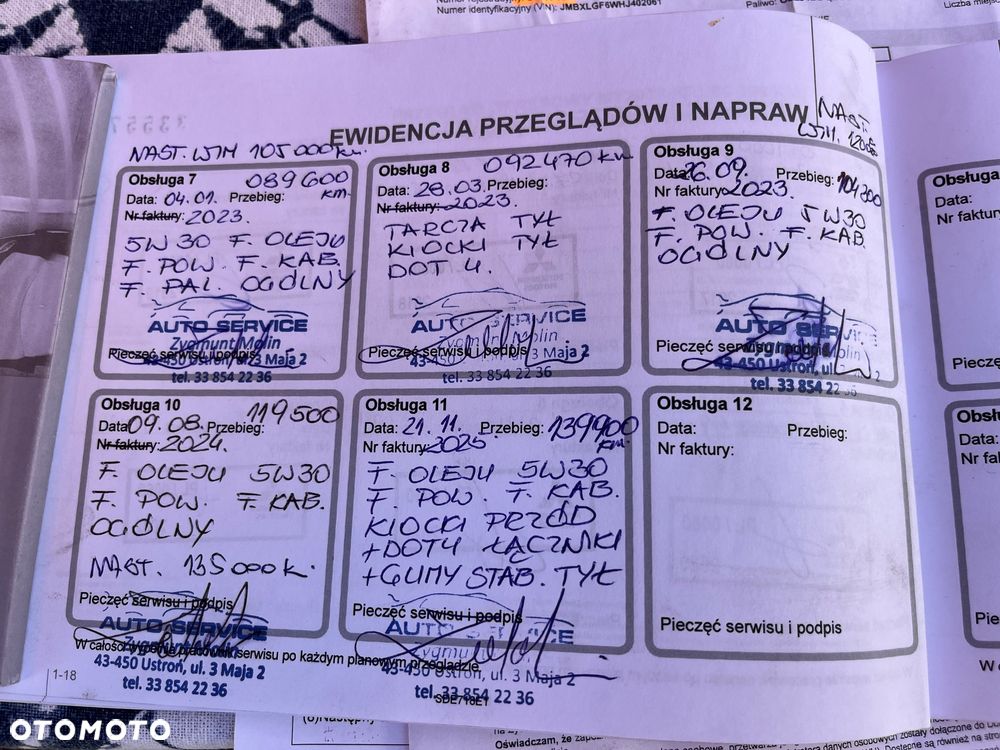 Numer identyfikacyjny (VIN): JMBXLGF6WHJ402061
Paliwo:
Liczba miejsc
EWIDENCJA PRZEGLĄDÓW I NAPRAW
NAST. WIM 105 000 km.
NAST.
WIM. 120
Obsługa 7
089600
km.
Data: 04.01. Przebieg:
Nr faktury: 2023.
5W30 F. OLEJU
F. POW. F. KAB.
F. PAL. OGÓLNY
AUTO SERVICE
Zygmunt Molin
Pieczęć serwisu i podpis
43-450 Ustroń, ul. 3 Maja 2
tel. 33 854 22 36
Obsługa 8
092470 km
Data: 28.03. Przebieg:
Nr faktury: 2023.
TARCZA TYŁ
KLOCKI TYŁ
DOT 4.
AUTO SERVICE
Pieczęć serwisu i podpis
43-450 Ustroń, ul. 3 Maja 2
tel. 33 854 22 36
Obsługa 9
Data: 26.09. Przebieg: 104300
Nr faktury: 2023.
F. OLEJU 5W30
F. POW. F. KAB.
OGÓLNY
AUTO SERVICE
Pieczęć serwisu i podpis
43-450 Ustroń, ul.
tel. 33 854 22 36
Obsługa 10
119500
Data: 09.08. Przebieg:
Nr faktury: 2024.
F. OLEJU 5W30
F. POW. F. KAB.
OGÓLNY
NAST. 135000 k.
Pieczęć serwisu i podpis
AUTO SERVICE
43-450 Ustroń, ul. 3 Maja 2
tel. 33 854 22 36
Obsługa 11
Data: 21.11. Przebieg: 139900
km.
Nr faktury: 2025.
F. OLEJU 5W30
F. POW. F. KAB.
KLOCKI PRZÓD
+DOT4 ŁĄCZNIKI
+GUMY STAB. TYŁ
Pieczęć serwisu i podpis
AUTO SERVICE
43-450 Ustroń, ul. 3 Maja 2
tel. 33 854 22 36
Obsługa 12
Data: Przebieg:
Nr faktury:
Pieczęć serwisu i podpis
serwisu po każdym planowym przeglądzie
1-18
SDE718E1
Obsługa
Data:
Nr faktury
Pieczęć
Obsługa
Data:
Nr
Pieczęć
OTOMOTO
Oświadczam, że zapoz